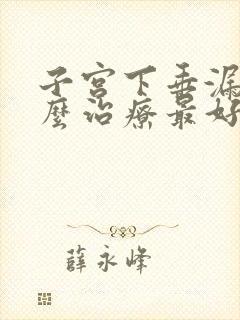 子宫下垂漏
麼治療最好
薛永峰